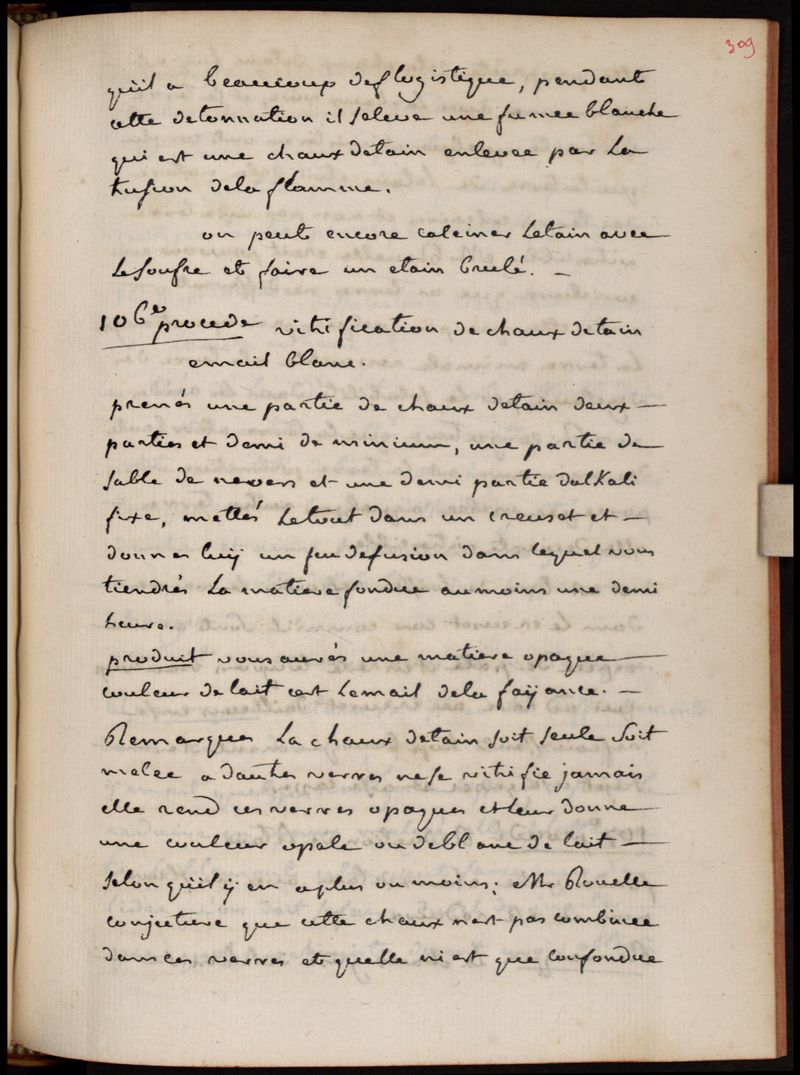 309
quil a beaucoup deflogistique, pendant
cette detonnation il seleve une fumée blanche
qui est une chaux detain enlevée par la
fusion dela flamme.
on peut encore calciner letain avec
le soufre et faire un etain brulé. _
106e procede vitrification de chaux detain
email blanc.
prenés une partie de chaux detain deux —
parties et demi de minium, une partie de
sable de nevers et une demi partie dalkali
fixe, mettés letout dans un creuset et —
donnes luy un feu defusion dans lequel vous
tiendrés la matiere fondue aumoins une demi
heure.
produit vous aurés une matiere opaque —
couleur de lait cest lemail dela fayance. —
Remarques la chaux detain soit seule soit
melée a dautres verres nese vitrifie jamais
elle rend ces verres opaques etleur donne —
une couleur opale ou deblanc de lait —
selon quil y en aplus ou moins; Mr Rouelle
conjecture que cette chaux nest pas combinée
dans ces verres et quelle ni est que confondue